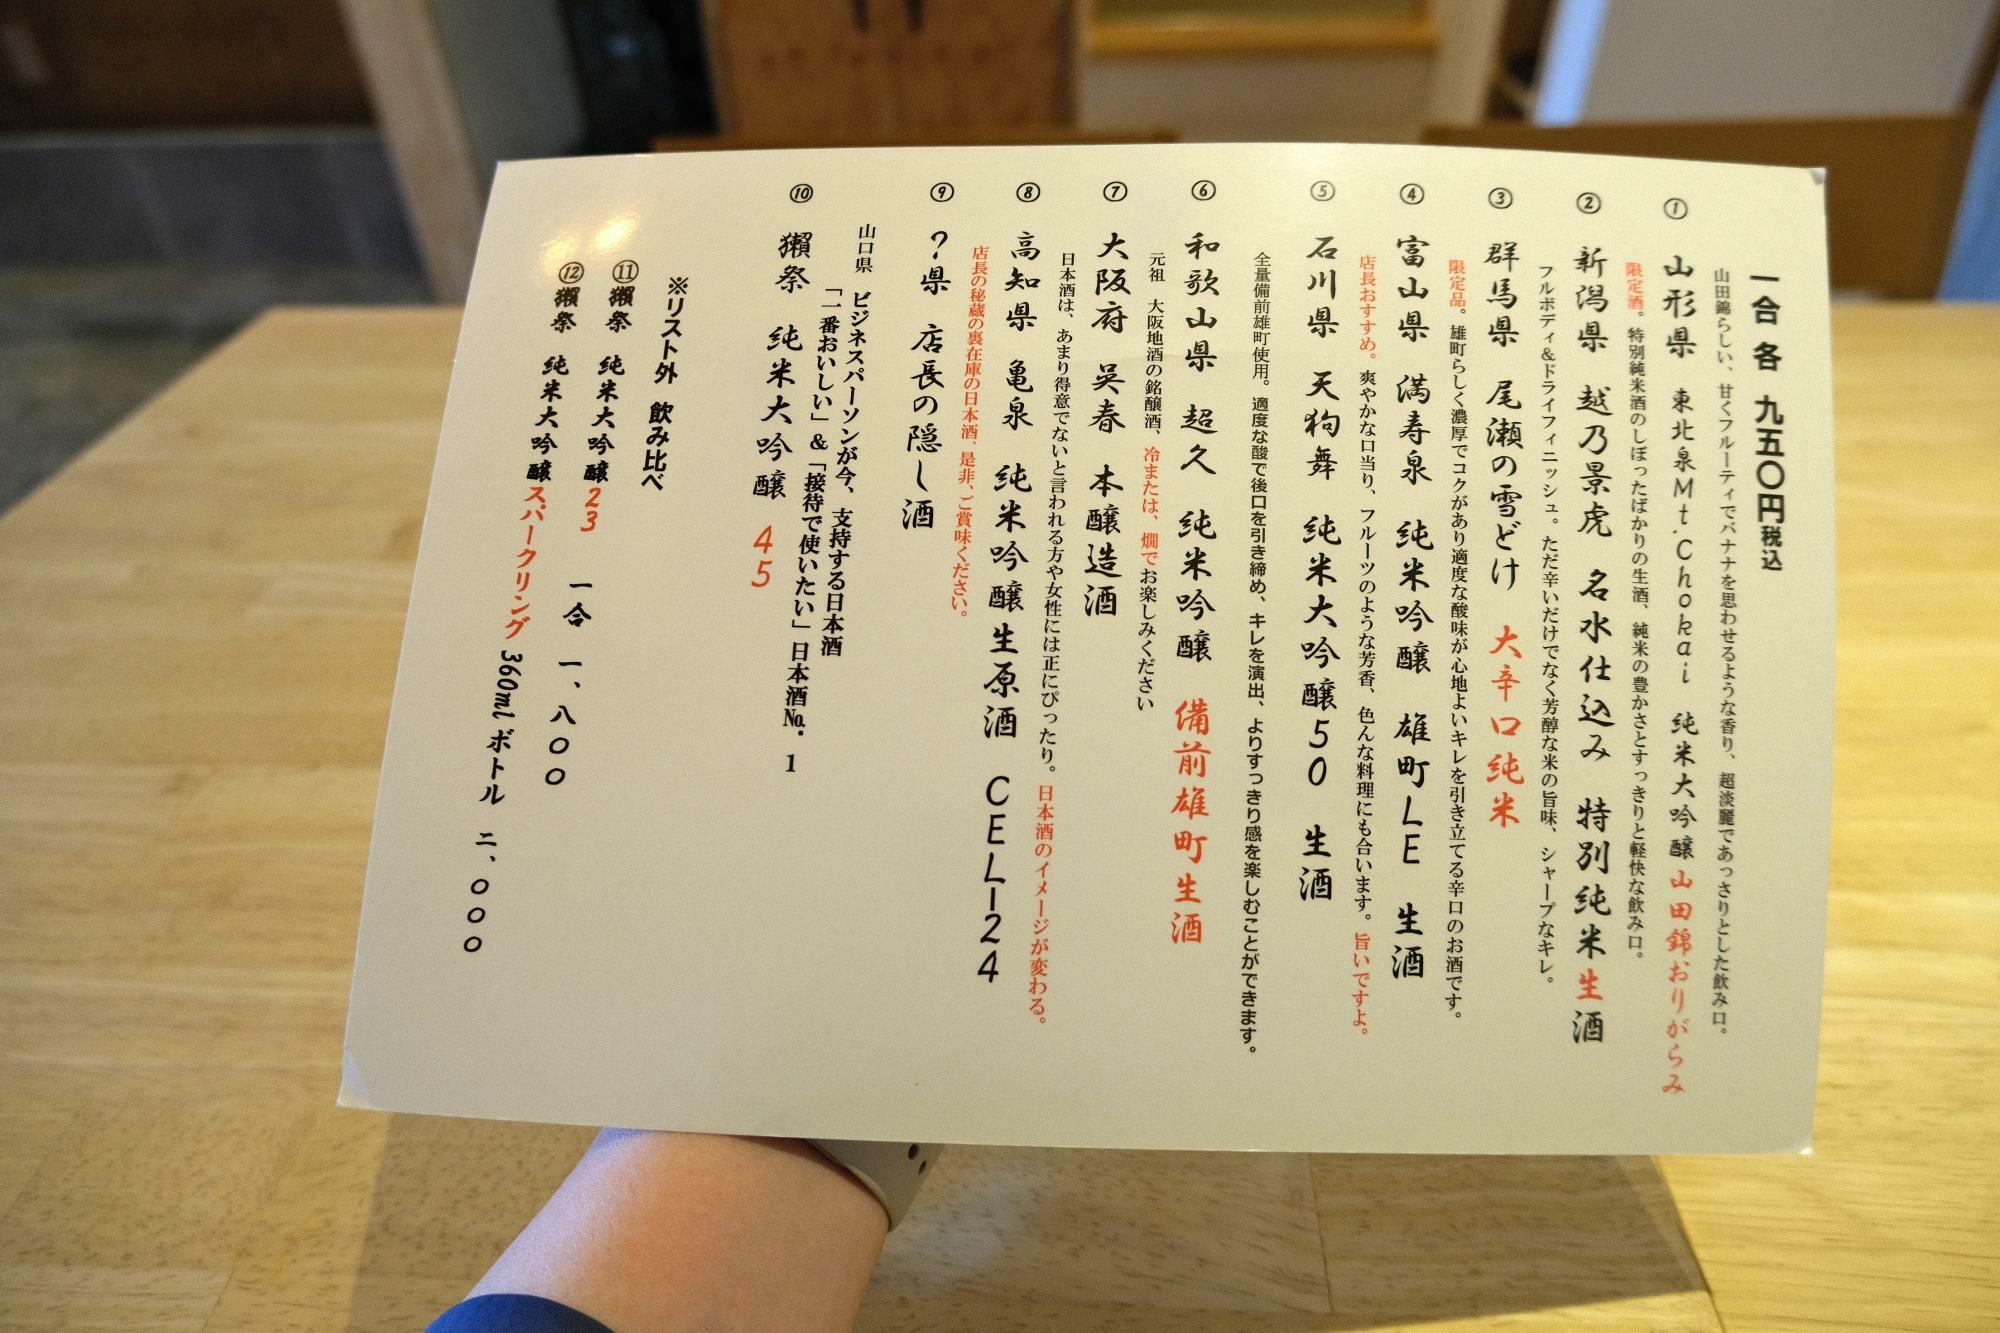 一合 各 九五〇円税込
山田錦らしい、甘くフルーティでバナナを思わせるような香り、超淡麗であっさりとした飲み口。
① 山形県 東北泉Mt.Chokai 純米大吟醸山田錦おりがらみ
限定酒。特別純米酒のしぼったばかりの生酒、純米の豊かさとすっきりと軽快な飲み口。
② 新潟県 越乃景虎 名水仕込み 特別純米生酒
フルボディ&ドライフィニッシュ。ただ辛いだけでなく芳醇な米の旨味、シャープなキレ。
③ 群馬県 尾瀬の雪どけ 大辛口純米
限定品。雄町らしく濃厚でコクがあり適度な酸味が心地よいキレを引き立てる辛口のお酒です。
④ 富山県 満寿泉 純米吟醸 雄町LE 生酒
店長おすすめ。爽やかな口当り、フルーツのような芳香、色んな料理にも合います。旨いですよ。
⑤ 石川県 天狗舞 純米大吟醸50 生酒
全量備前雄町使用。適度な酸で後口を引き締め、キレを演出、よりすっきり感を楽しむことができます。
⑥ 和歌山県 超久 純米吟醸 備前雄町生酒
元祖 大阪地酒の銘醸酒、冷または、燗でお楽しみください
⑦ 大阪府 呉春 本醸造酒
日本酒は、あまり得意でないと言われる方や女性には正にぴったり。日本酒のイメージが変わる。
⑧ 高知県 亀泉 純米吟醸生原酒 CEL-24
店長の秘蔵の裏在庫の日本酒、是非、ご賞味ください。
⑨ ?県 店長の隠し酒
山口県 ビジネスパーソンが今、支持する日本酒
「一番おいしい」&「接待で使いたい」日本酒No.1
⑩ 獺祭 純米大吟醸 45
※リスト外 飲み比べ
⑪獺祭 純米大吟醸23 一合 一、八〇〇
⑫獺祭 純米大吟醸スパークリング 360ml ボトル 二、〇〇〇